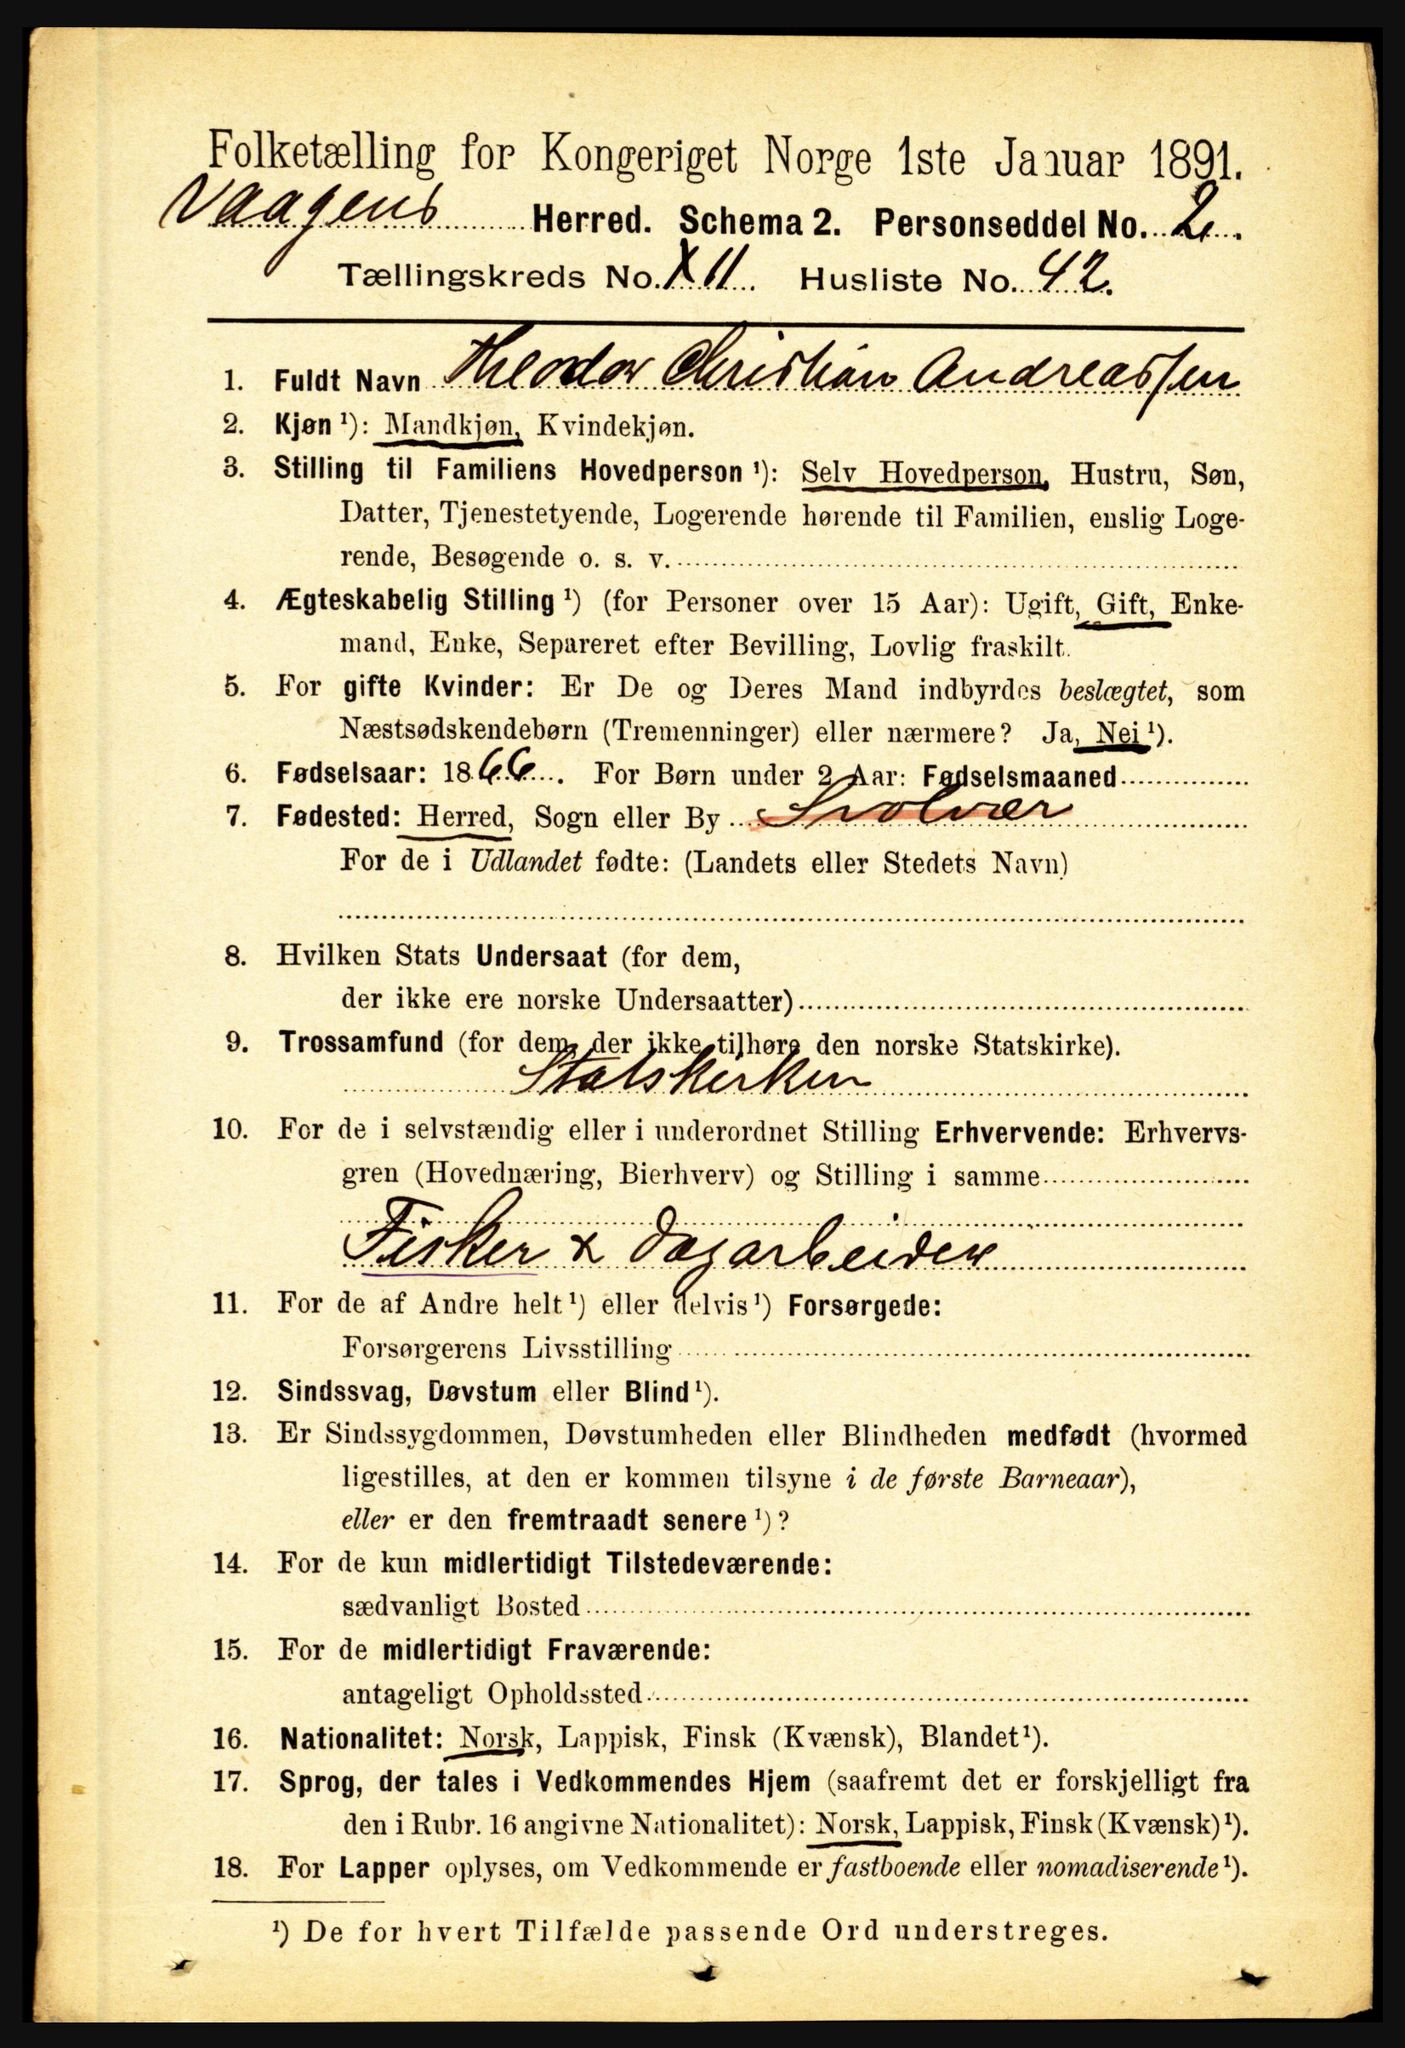 Folketælling for Kongeriget Norge 1ste Januar 1891.
Vaagens Herred. Schema 2. Personseddel No. 2.
Tællingskreds No. XII. Husliste No. 42.
1. Fuldt Navn Theodor Christian Andreassen
2. Kjøn ¹): Mandkjøn, Kvindekjøn.
3. Stilling til Familiens Hovedperson ¹): Selv Hovedperson, Hustru, Søn,
Datter, Tjenestetyende, Logerende hørende til Familien, enslig Loge-
rende, Besøgende o. s. v.
4. Ægteskabelig Stilling ¹) (for Personer over 15 Aar): Ugift, Gift, Enke-
mand, Enke, Separeret efter Bevilling, Lovlig fraskilt.
5. For gifte Kvinder: Er De og Deres Mand indbyrdes beslægtet, som
Næstsødskendebørn (Tremenninger) eller nærmere? Ja, Nei ¹).
6. Fødselsaar: 1866. For Børn under 2 Aar: Fødselsmaaned
7. Fødested: Herred, Sogn eller By Svolvær
For de i Udlandet fødte: (Landets eller Stedets Navn)
8. Hvilken Stats Undersaat (for dem,
der ikke ere norske Undersaatter)
9. Trossamfund (for dem, der ikke tilhøre den norske Statskirke).
Statskirken
10. For de i selvstændig eller i underordnet Stilling Erhvervende: Erhvervs-
gren (Hovednæring, Bierhverv) og Stilling i samme
Fisker & dagarbeider
11. For de af Andre helt ¹) eller delvis ¹) Forsørgede:
Forsørgerens Livsstilling
12. Sindssvag, Døvstum eller Blind ¹).
13. Er Sindssygdommen, Døvstumheden eller Blindheden medfødt (hvormed
ligestilles, at den er kommen tilsyne i de første Barneaar),
eller er den fremtraadt senere ¹)?
14. For de kun midlertidigt Tilstedeværende:
sædvanligt Bosted
15. For de midlertidigt Fraværende:
antageligt Opholdssted
16. Nationalitet: Norsk, Lappisk, Finsk (Kvænsk), Blandet ¹).
17. Sprog, der tales i Vedkommendes Hjem (saafremt det er forskjelligt fra
den i Rubr. 16 angivne Nationalitet): Norsk, Lappisk, Finsk (Kvænsk) ¹).
18. For Lapper oplyses, om Vedkommende er fastboende eller nomadiserende ¹).
¹) De for hvert Tilfælde passende Ord understreges.